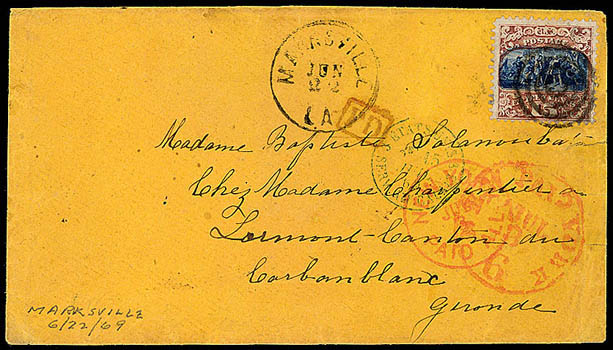 MARKSVILLE
JUN
22
LA
POSTAGE
PD
Madame Baptiste
Chez Madame Charpentier a
Lormont-Canton du
Carbanblanc
Gironde
NEW YORK
PAID
MARKSVILLE
6/22/69